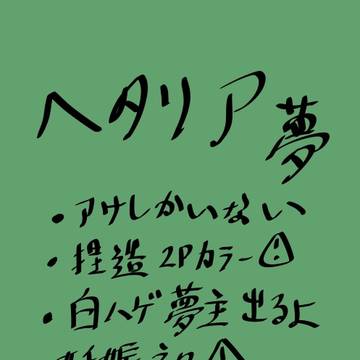 ヘタリア夢
・アサしかいない
・捏造2Pカラー⚠
・白ハゲ夢主出るよ